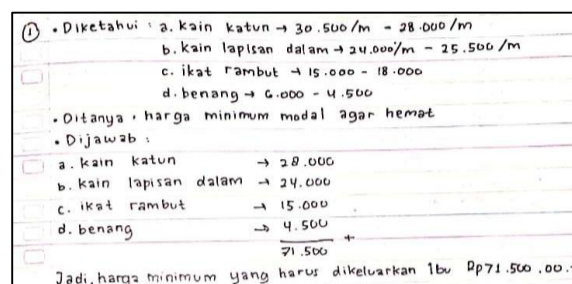 ① • Diketahui : a. kain katun → 30.500/m - 28.000/m
b. kain lapisan dalam → 24.000/m - 25.500/m
c. ikat rambut → 15.000 - 18.000
d. benang → 6.000 - 4.500
• Ditanya . harga minimum modal agar hemat
• Dijawab :
a. kain katun → 28.000
b. kain lapisan dalam → 24.000
c. ikat rambut → 15.000
d. benang → 4.500
+
71.500
Jadi, harga minimum yang harus dikeluarkan Ibu Rp71.500,00.-